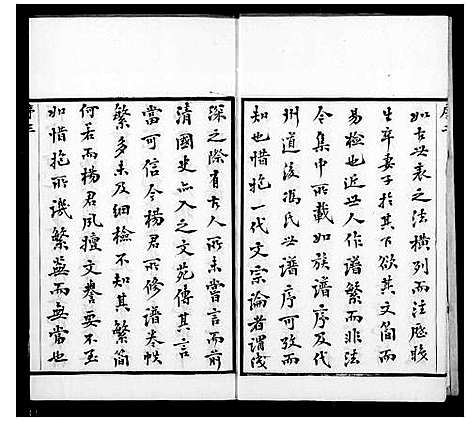 序二
如古世表之法橫列而注歷䀹
生卒妻子於其下欲其文简而
易檢也近世人作譜繁而非法
今集中所載如族譜序及代
州道後馮氏世譜序可攷而
知也惜抱一代文宗論者謂後
深之際有古人所未嘗言而前
清國史亦入之文苑傳其言
當可信今楊君所修譜卷帙
繁多未及細檢不知其繁簡
何若而楊君夙擅文譽要不至
如惜抱所譏繁蕪而無當也
序三